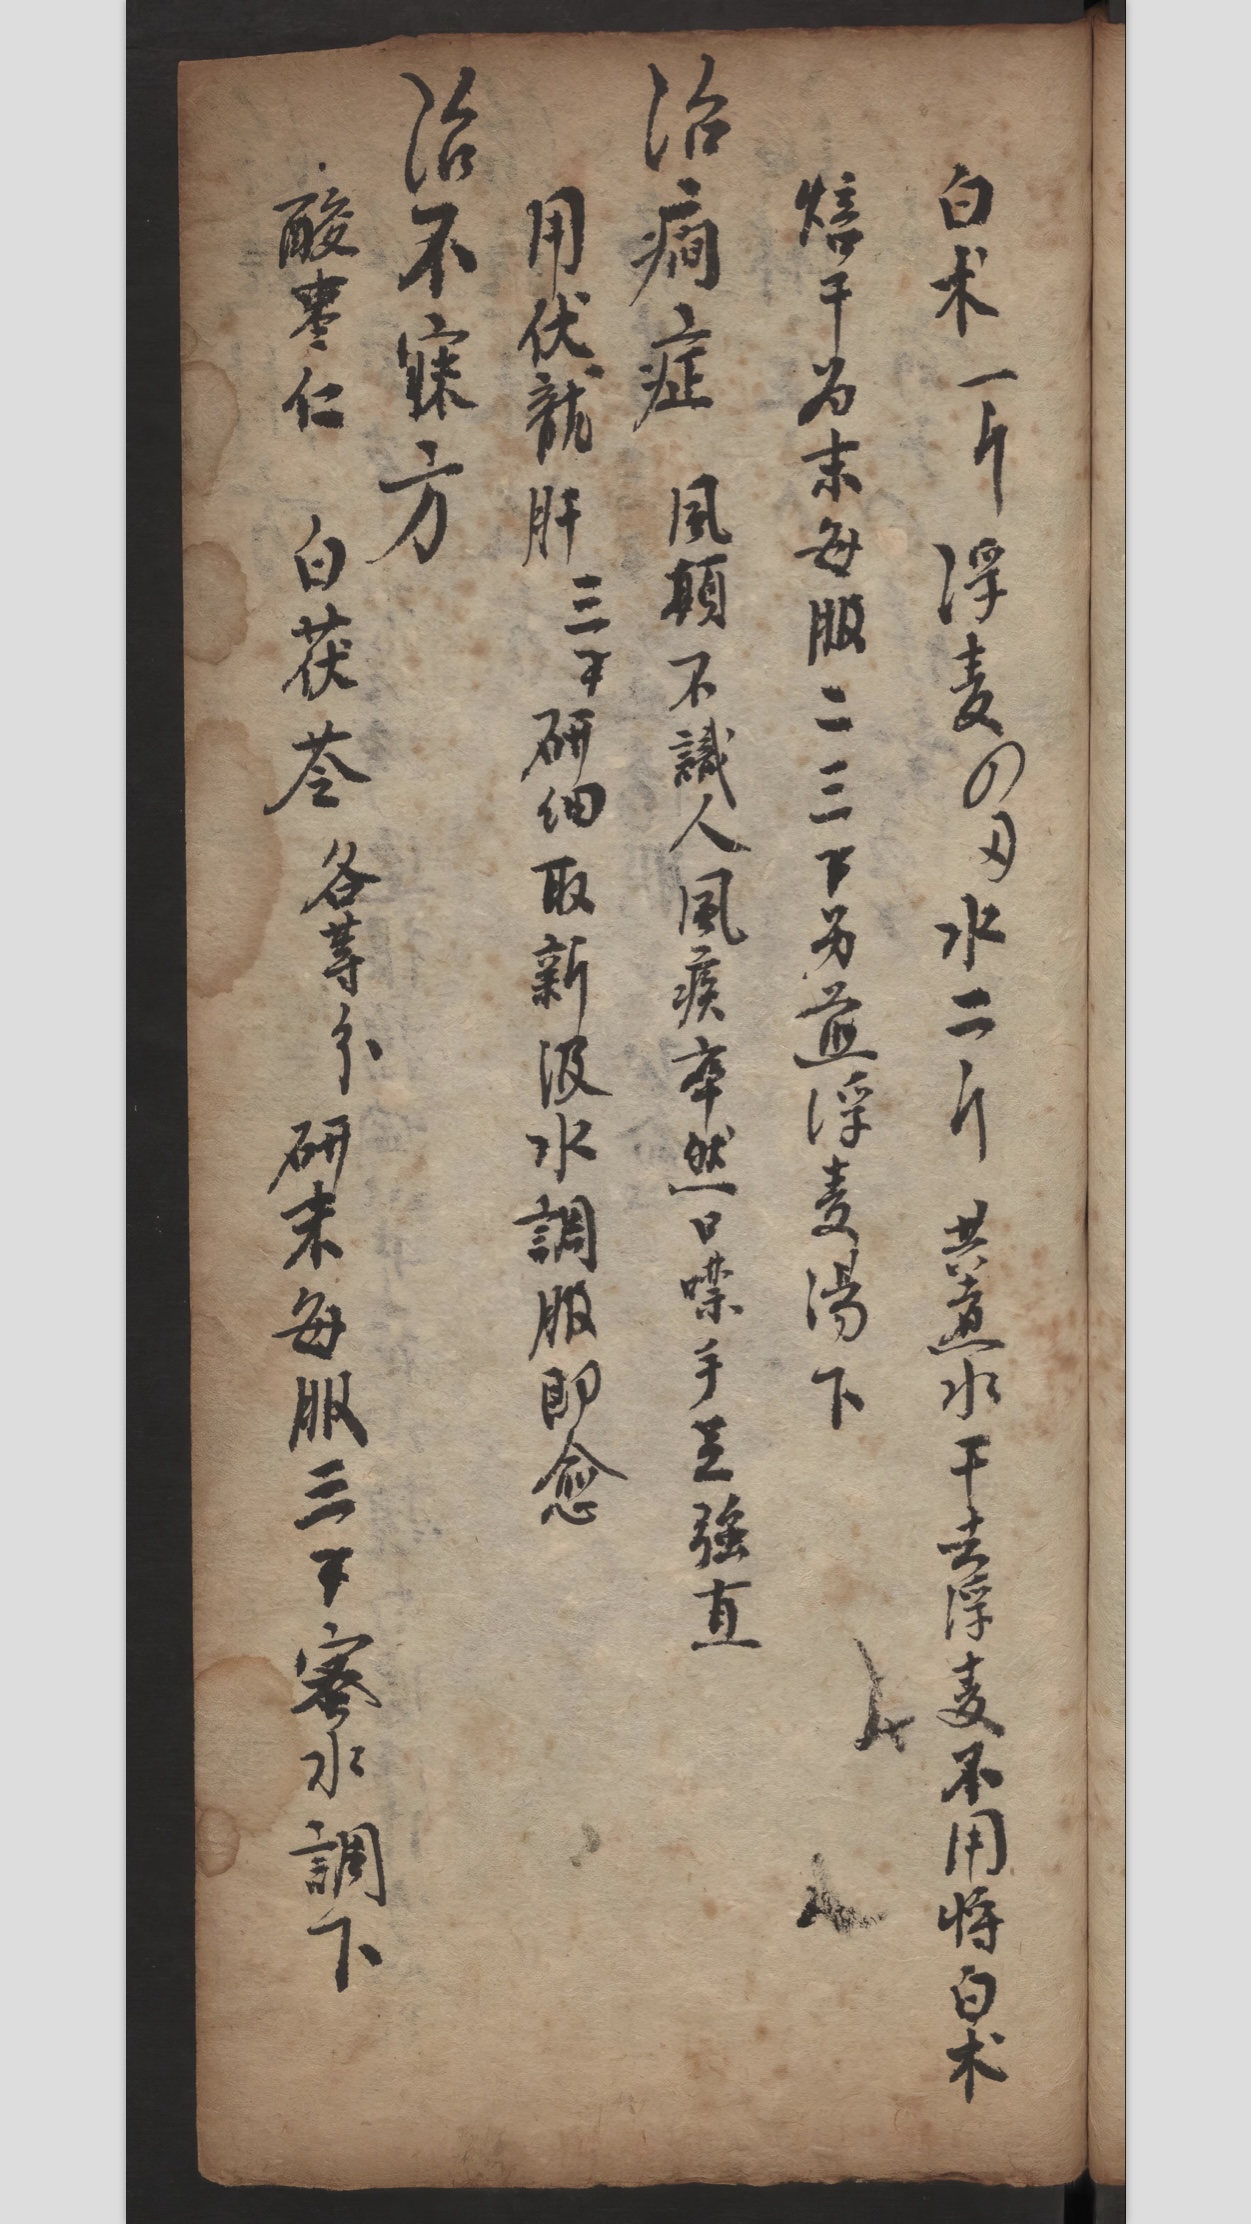 白术一斤 浮麦四両水二斤 共煮水干去浮麦不用将白术
焙干为末每服二三下另煎浮麦湯下
治癇症 風顛不識人風痰卒然口噤手足強直
用伏龍肝三下研细取新汲水調服即愈
治不寐方
酸枣仁 白茯苓各等分研末每服三下蜜水調下